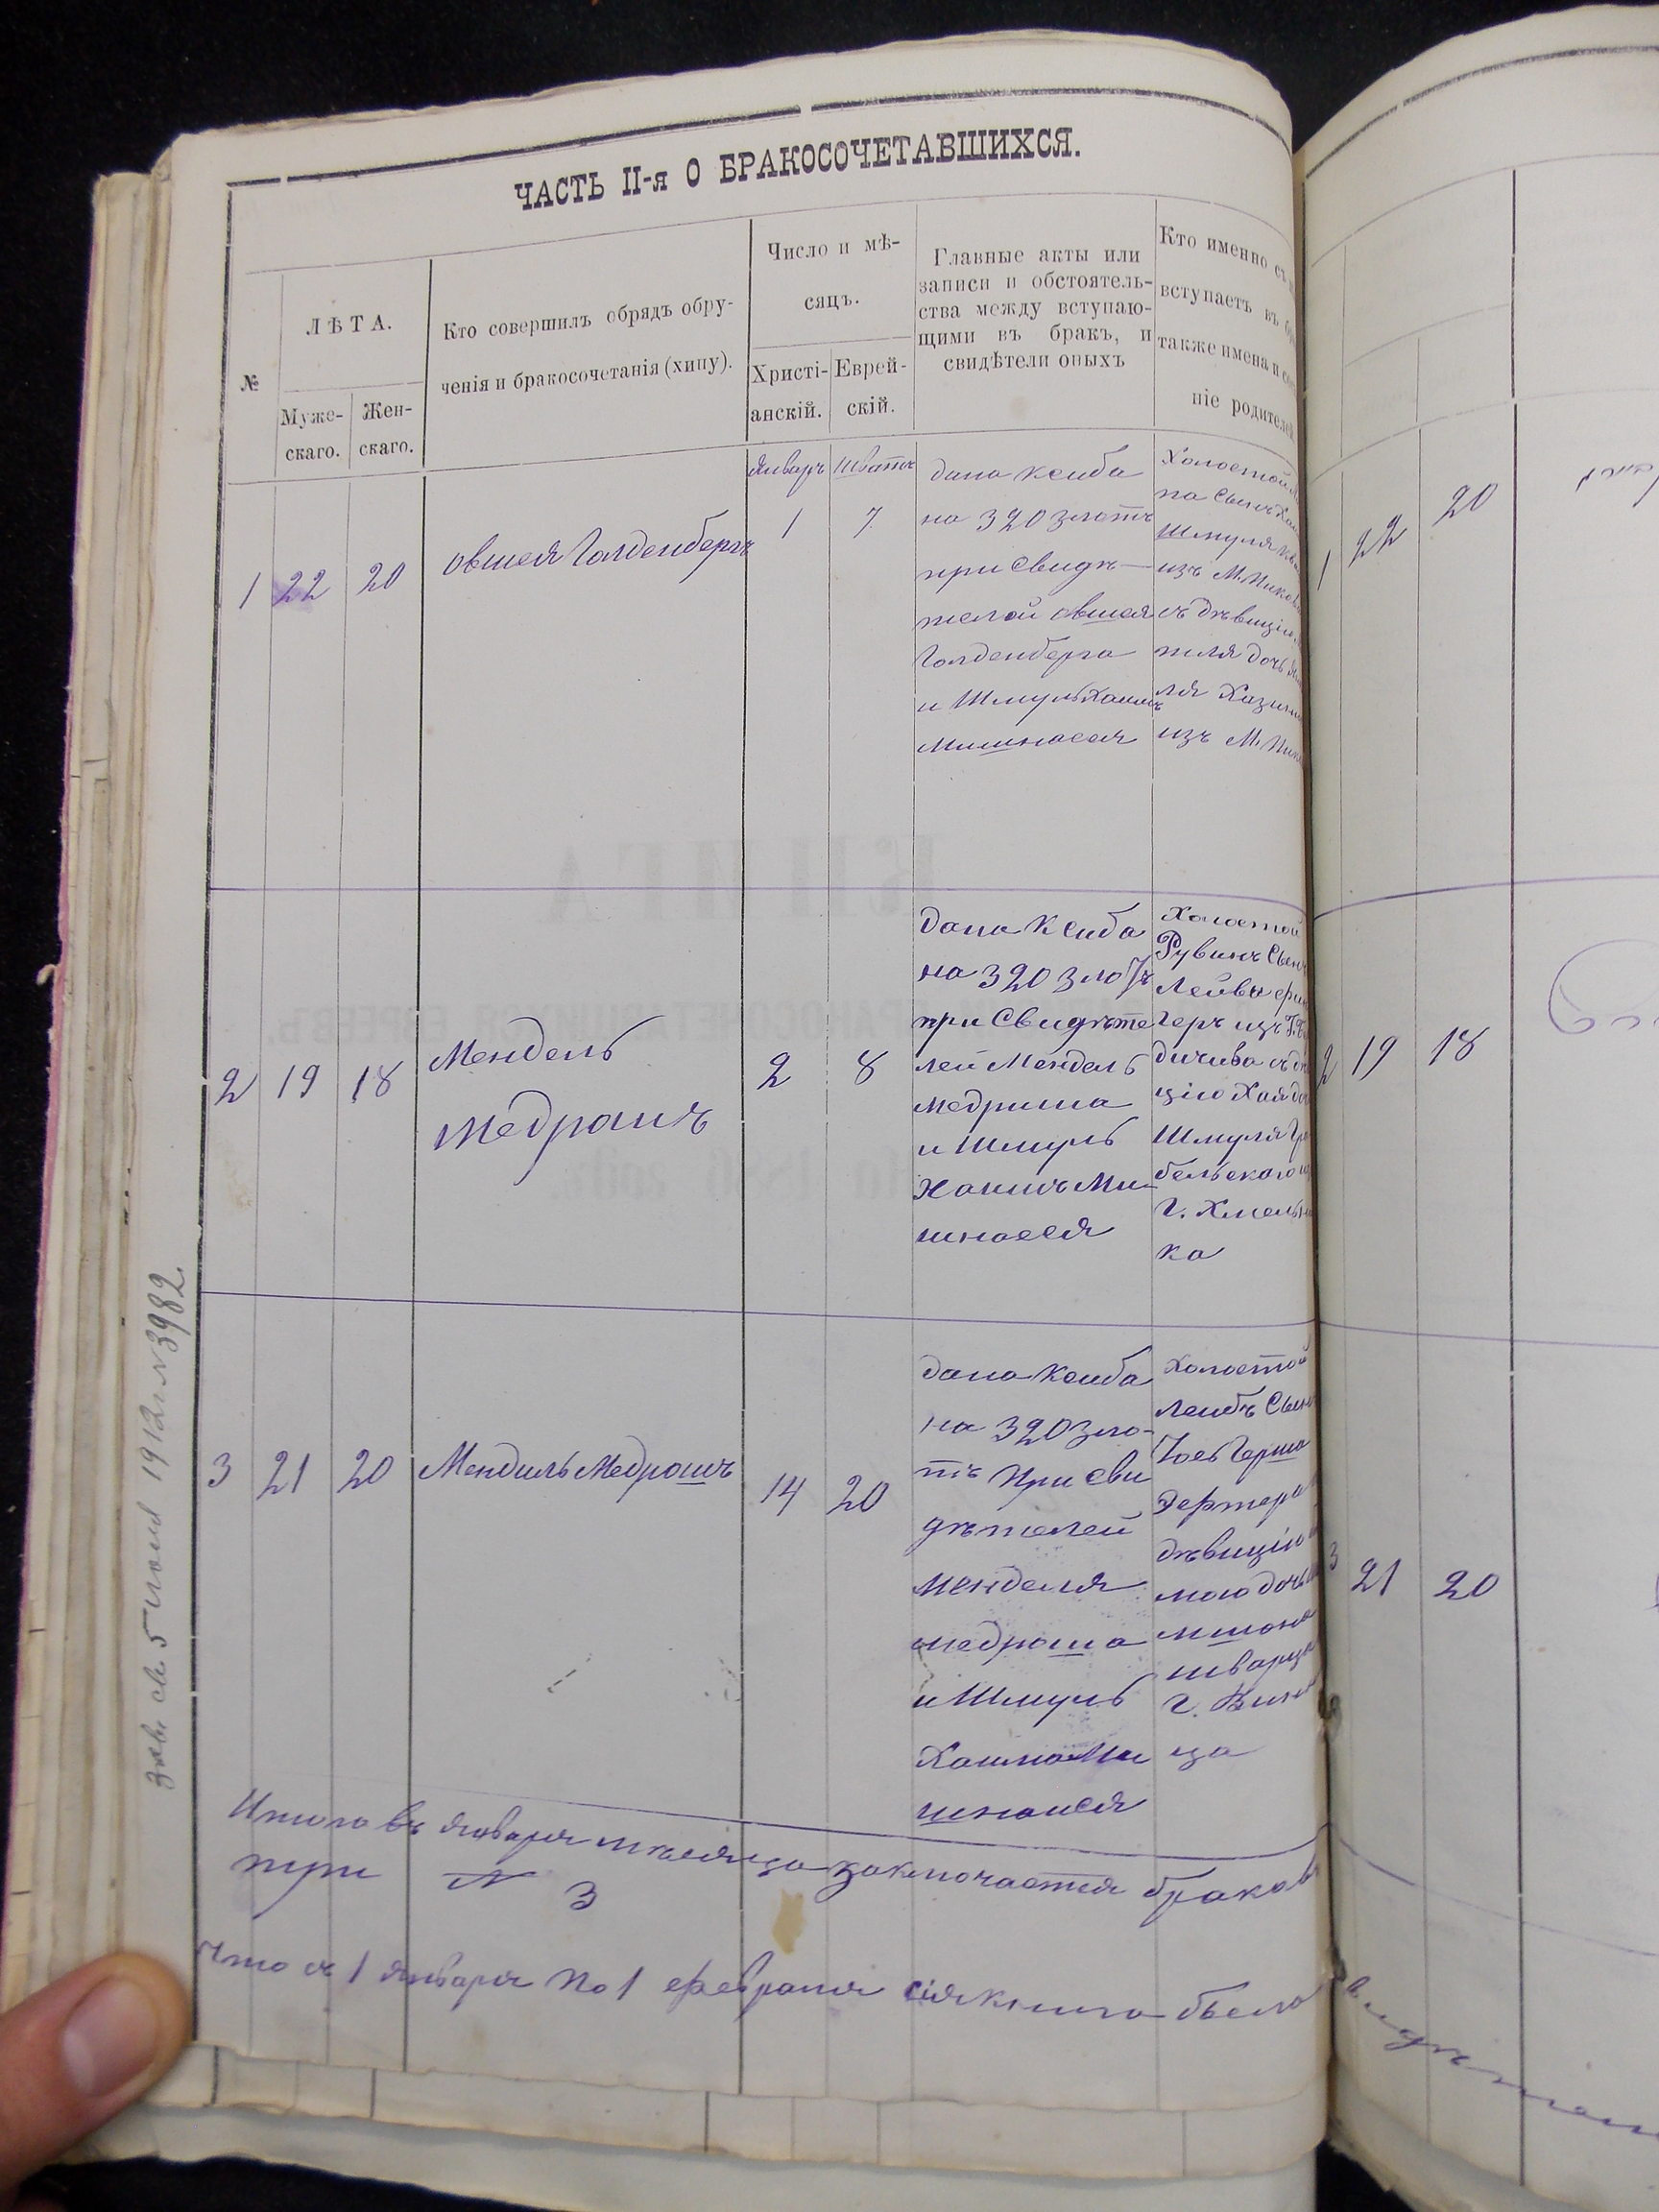 ЧАСТЬ II-я О БРАКОСОЧЕТАВШИХСЯ.
№
ЛѢТА.
Муже-
скаго.
Жен-
скаго.
Кто совершилъ обрядъ обру-
ченія и бракосочетанія (хипу).
Число и мѣ-
сяцъ.
Христі-
анскій.
Еврей-
скій.
Главные акты или
записи и обстоятель-
ства между вступаю-
щими въ бракъ, и
свидѣтели оныхъ
Кто именно съ
вступаетъ въ
также имена и
ніе родителей
1
22
20
Овшея Голденбергъ
Январь
1
Шватъ
7
дана ксиба
на 320 злотъ
при Свидѣ-
телей Овшея
Голденберга
и Шмуль Хаимъ
Мишнаеея
Холостой
па Сынъ
Шмуля
изъ М. Пиков
съ дѣвицію
тля дочь
ля Хазин
изъ М. Пик
2
19
18
Мендель
Медрашъ
2
8
Дана Ксиба
на 320 злотъ
при Свидѣте
лей Мендель
Медриша
и Шмуль
Хаимъ Ми-
шнаеея
Холостой
Рувинъ Сынъ
Лейвы фин
геръ изъ Г. Бе
дичива съ дѣ
цію Хая до
Шмуля Гра
бельскаго
Г. Хмельни
ка
3
21
20
Мендиль Медрашъ
14
20
дана Ксиба
на 320 зло-
тъ При Сви
дѣтелей
Менделя
Медраша
и Шмуль
Хаима Ми
шнаися
Холостой
Леибъ Сынъ
Юсь Герша
дѣвицію
мою дочь
шварца
Г. Винн
ца
Итого въ Января мѣсяца заключается браковъ
три № 3
Что съ 1 Января по 1 Февраля сія книга была
1 22 20
2 19 18
3 21 20
заяв. св. 5 1912 г. № 3982.